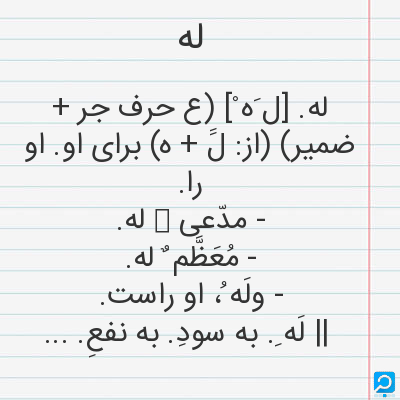 له
له. [ل َه ْ] (ع حرف جر +
ضمیر) (از: لَ + ه) برای او. او
را.
- مدّعی له.
- مُعَظَّم ٌ له.
- ولَه ُ، او راست.
|| لَه ِ. به سودِ. به نفعِ. ...